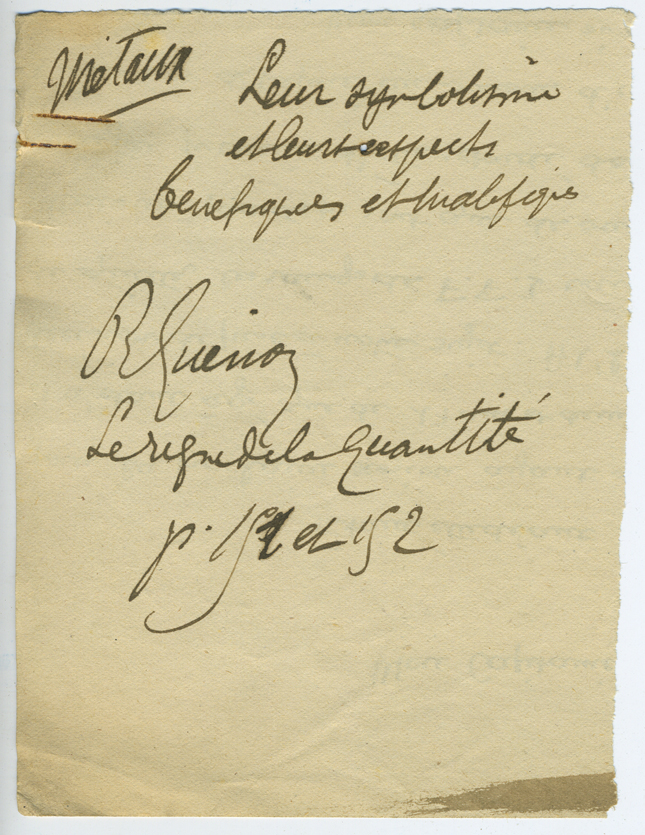 Métaux
Leur symbolisme
et leurs aspects
benefiques et malefiques
R Guenon
Le regne de la Quantité
p. 151 et 152